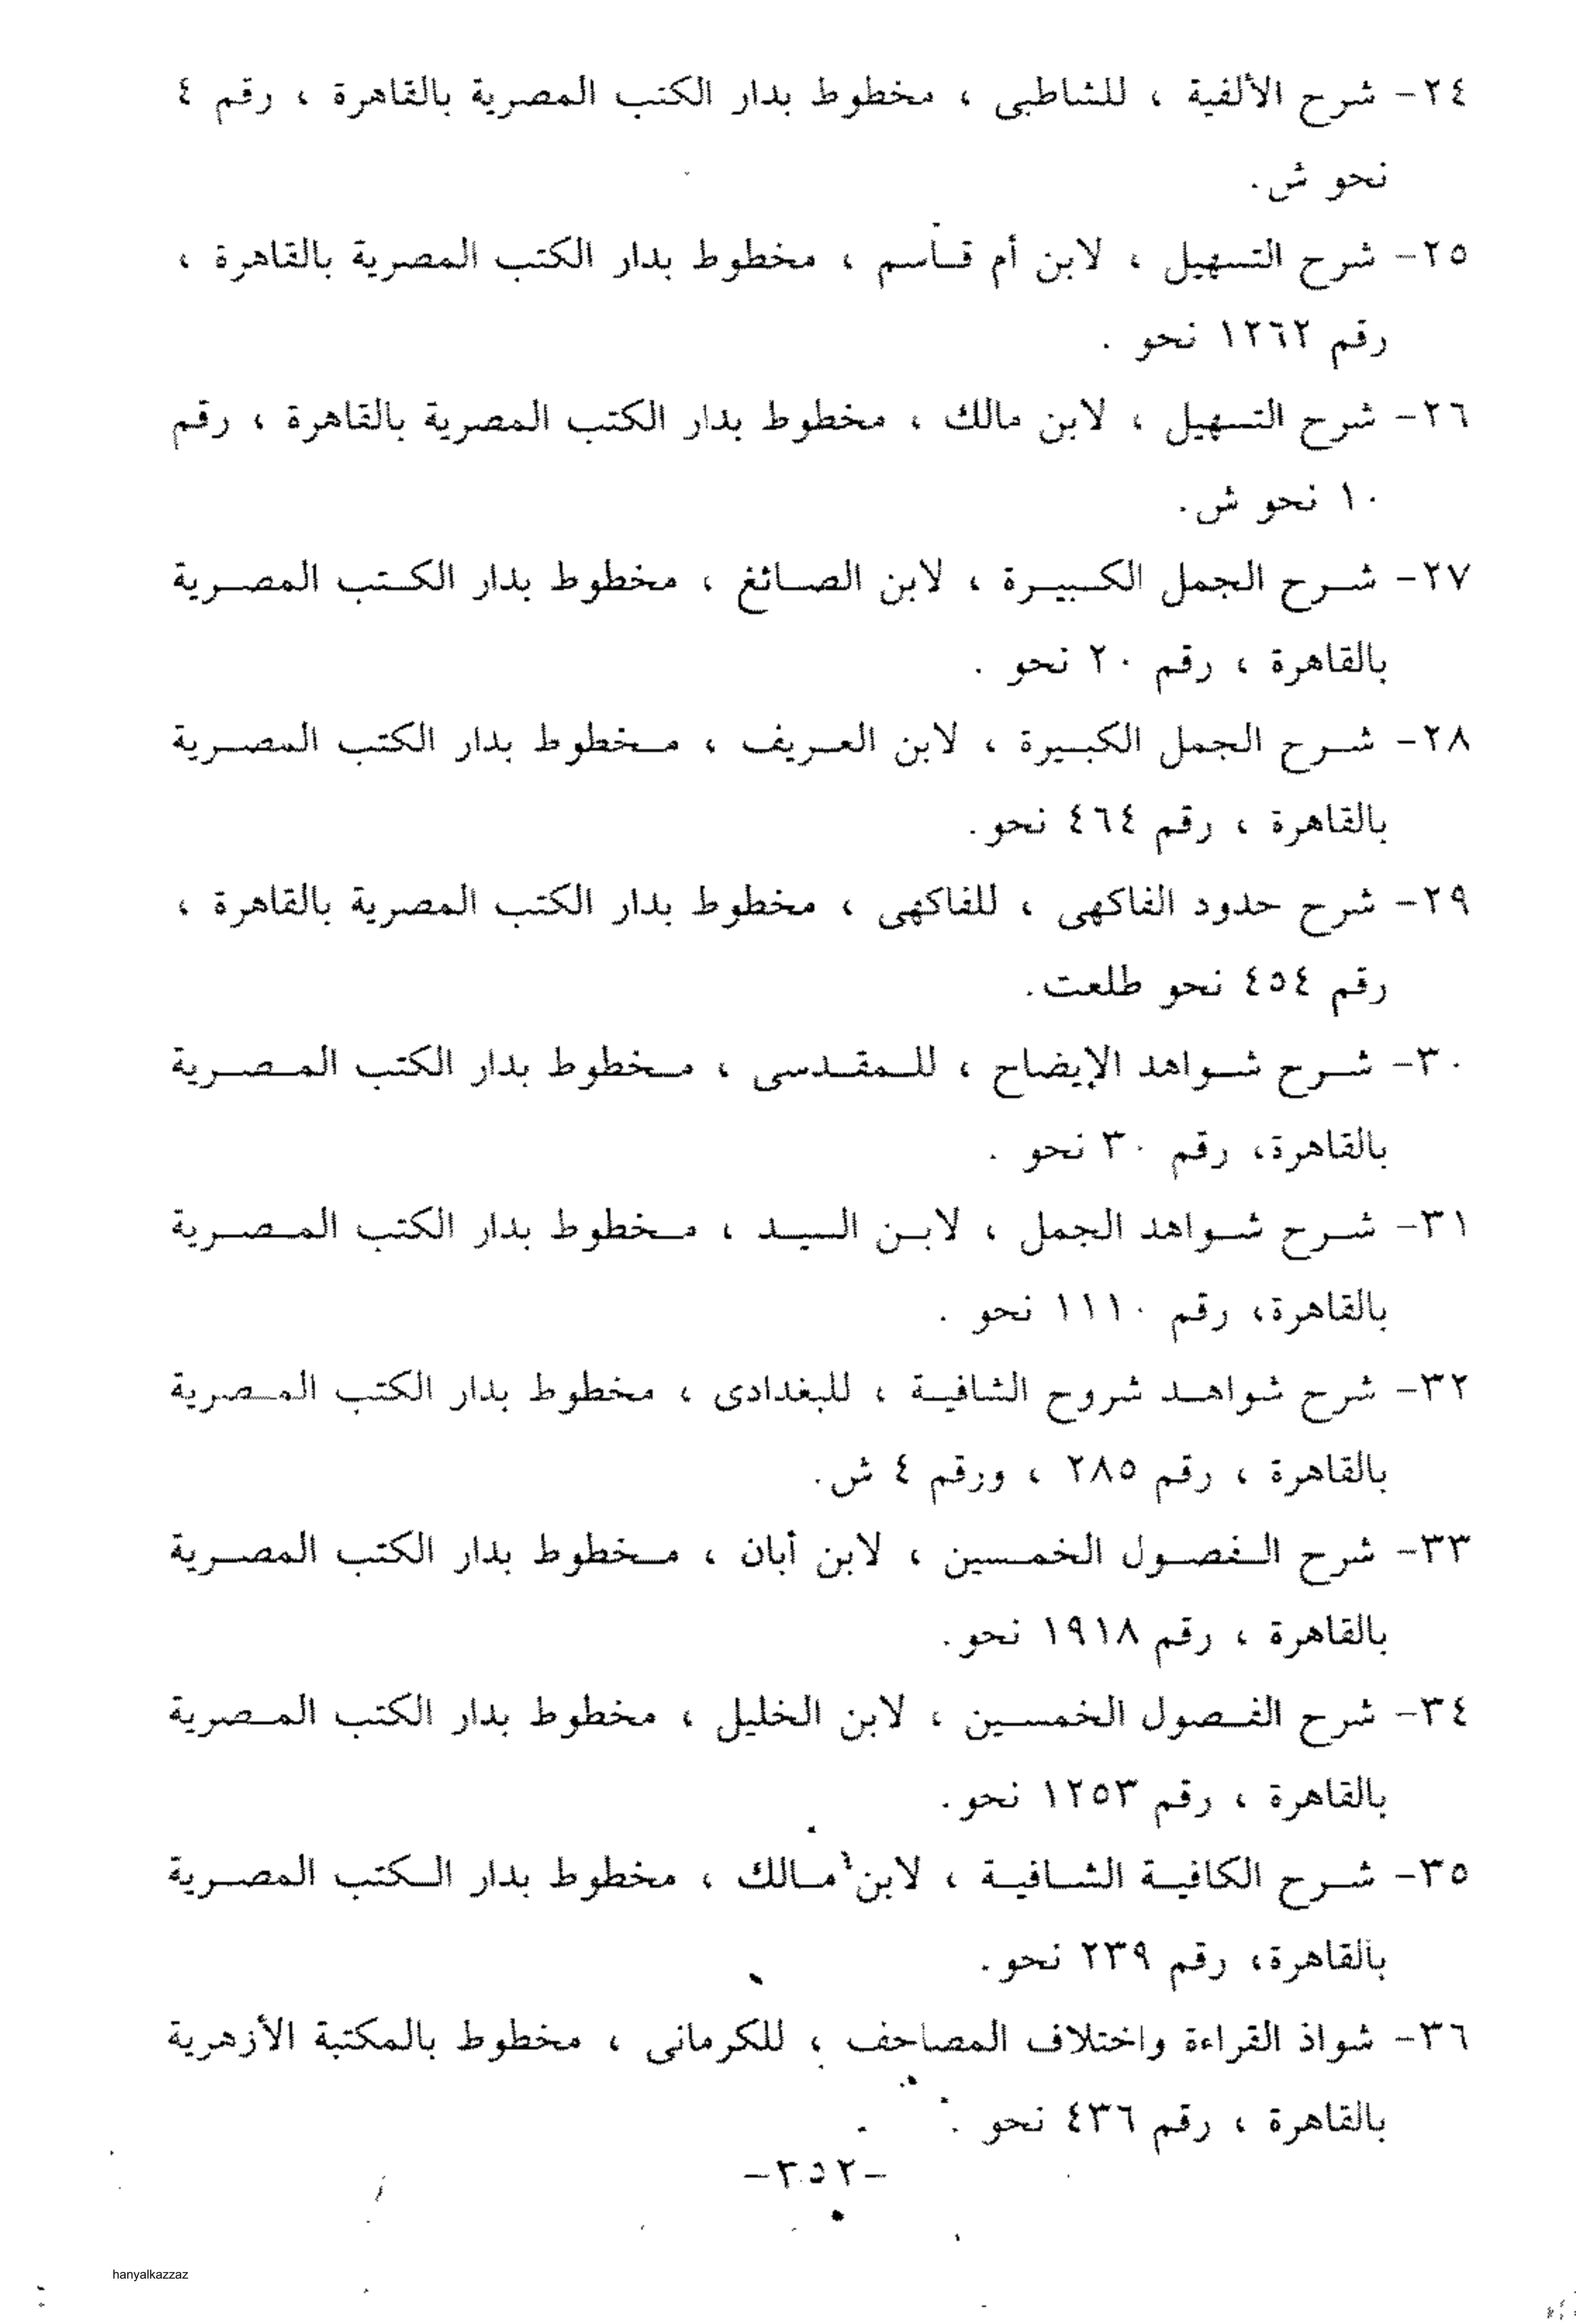 ٢٤- شرح الألفية ، للشاطبى ، مخطوط بدار الكتب المصرية بالقاهرة ، رقم ٤
نحو ش.
٢٥- شرح التسهيل ، لابن أم قاسم ، مخطوط بدار الكتب المصرية بالقاهرة ،
رقم ١٢٦٢ نحو .
٢٦- شرح التسهيل ، لابن مالك ، مخطوط بدار الكتب المصرية بالقاهرة ، رقم
١٠ نحو ش.
٢٧- شرح الجمل الكبيرة ، لابن الصائغ ، مخطوط بدار الكتب المصرية
بالقاهرة ، رقم ٢٠ نحو .
٢٨- شرح الجمل الكبيرة ، لابن العريف ، مخطوط بدار الكتب المصرية
بالقاهرة ، رقم ٤٦٤ نحو.
٢٩- شرح حدود الفاكهى ، للفاكهى ، مخطوط بدار الكتب المصرية بالقاهرة ،
رقم ٤٥٤ نحو طلعت.
٣٠- شرح شواهد الإيضاح ، للمقدسى ، مخطوط بدار الكتب المصرية
بالقاهرة، رقم ٣٠ نحو .
٣١- شرح شواهد الجمل ، لابن السيد ، مخطوط بدار الكتب المصرية
بالقاهرة، رقم ١١١٠ نحو .
٣٢- شرح شواهد شروح الشافية ، للبغدادى ، مخطوط بدار الكتب المصرية
بالقاهرة ، رقم ٢٨٥ ، ورقم ٤ ش.
٣٣- شرح الفصول الخمسين ، لابن أبان ، مخطوط بدار الكتب المصرية
بالقاهرة ، رقم ١٩١٨ نحو.
٣٤- شرح الفصول الخمسين ، لابن الخليل ، مخطوط بدار الكتب المصرية
بالقاهرة ، رقم ١٢٥٣ نحو.
٣٥- شرح الكافية الشافية ، لابن مالك ، مخطوط بدار الكتب المصرية
بالقاهرة، رقم ٢٣٩ نحو.
٣٦- شواذ القراءة واختلاف المصاحف ، للكرمانى ، مخطوط بالمكتبة الأزهرية
بالقاهرة ، رقم ٤٣٦ نحو .
-٢٥٢-
hanyalkazzaz